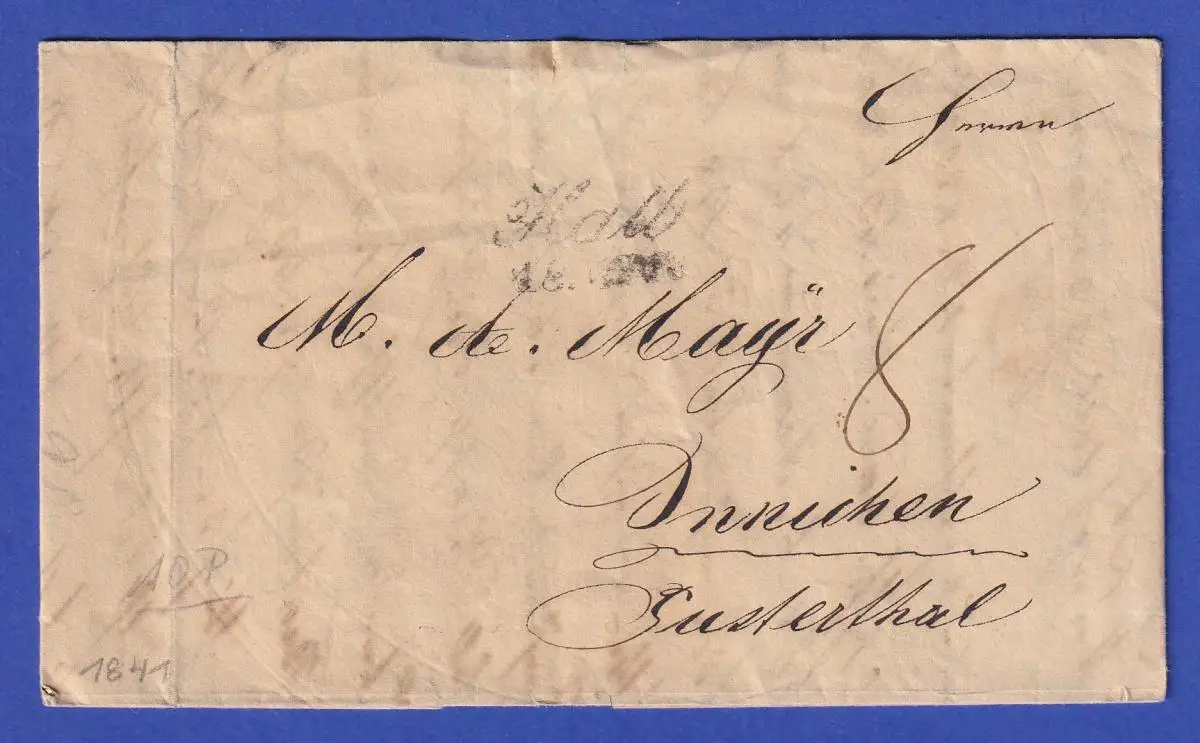 Herrn
Hall
M. de. Maÿr
8
Innichen
Pusterthal
10 P.
1841